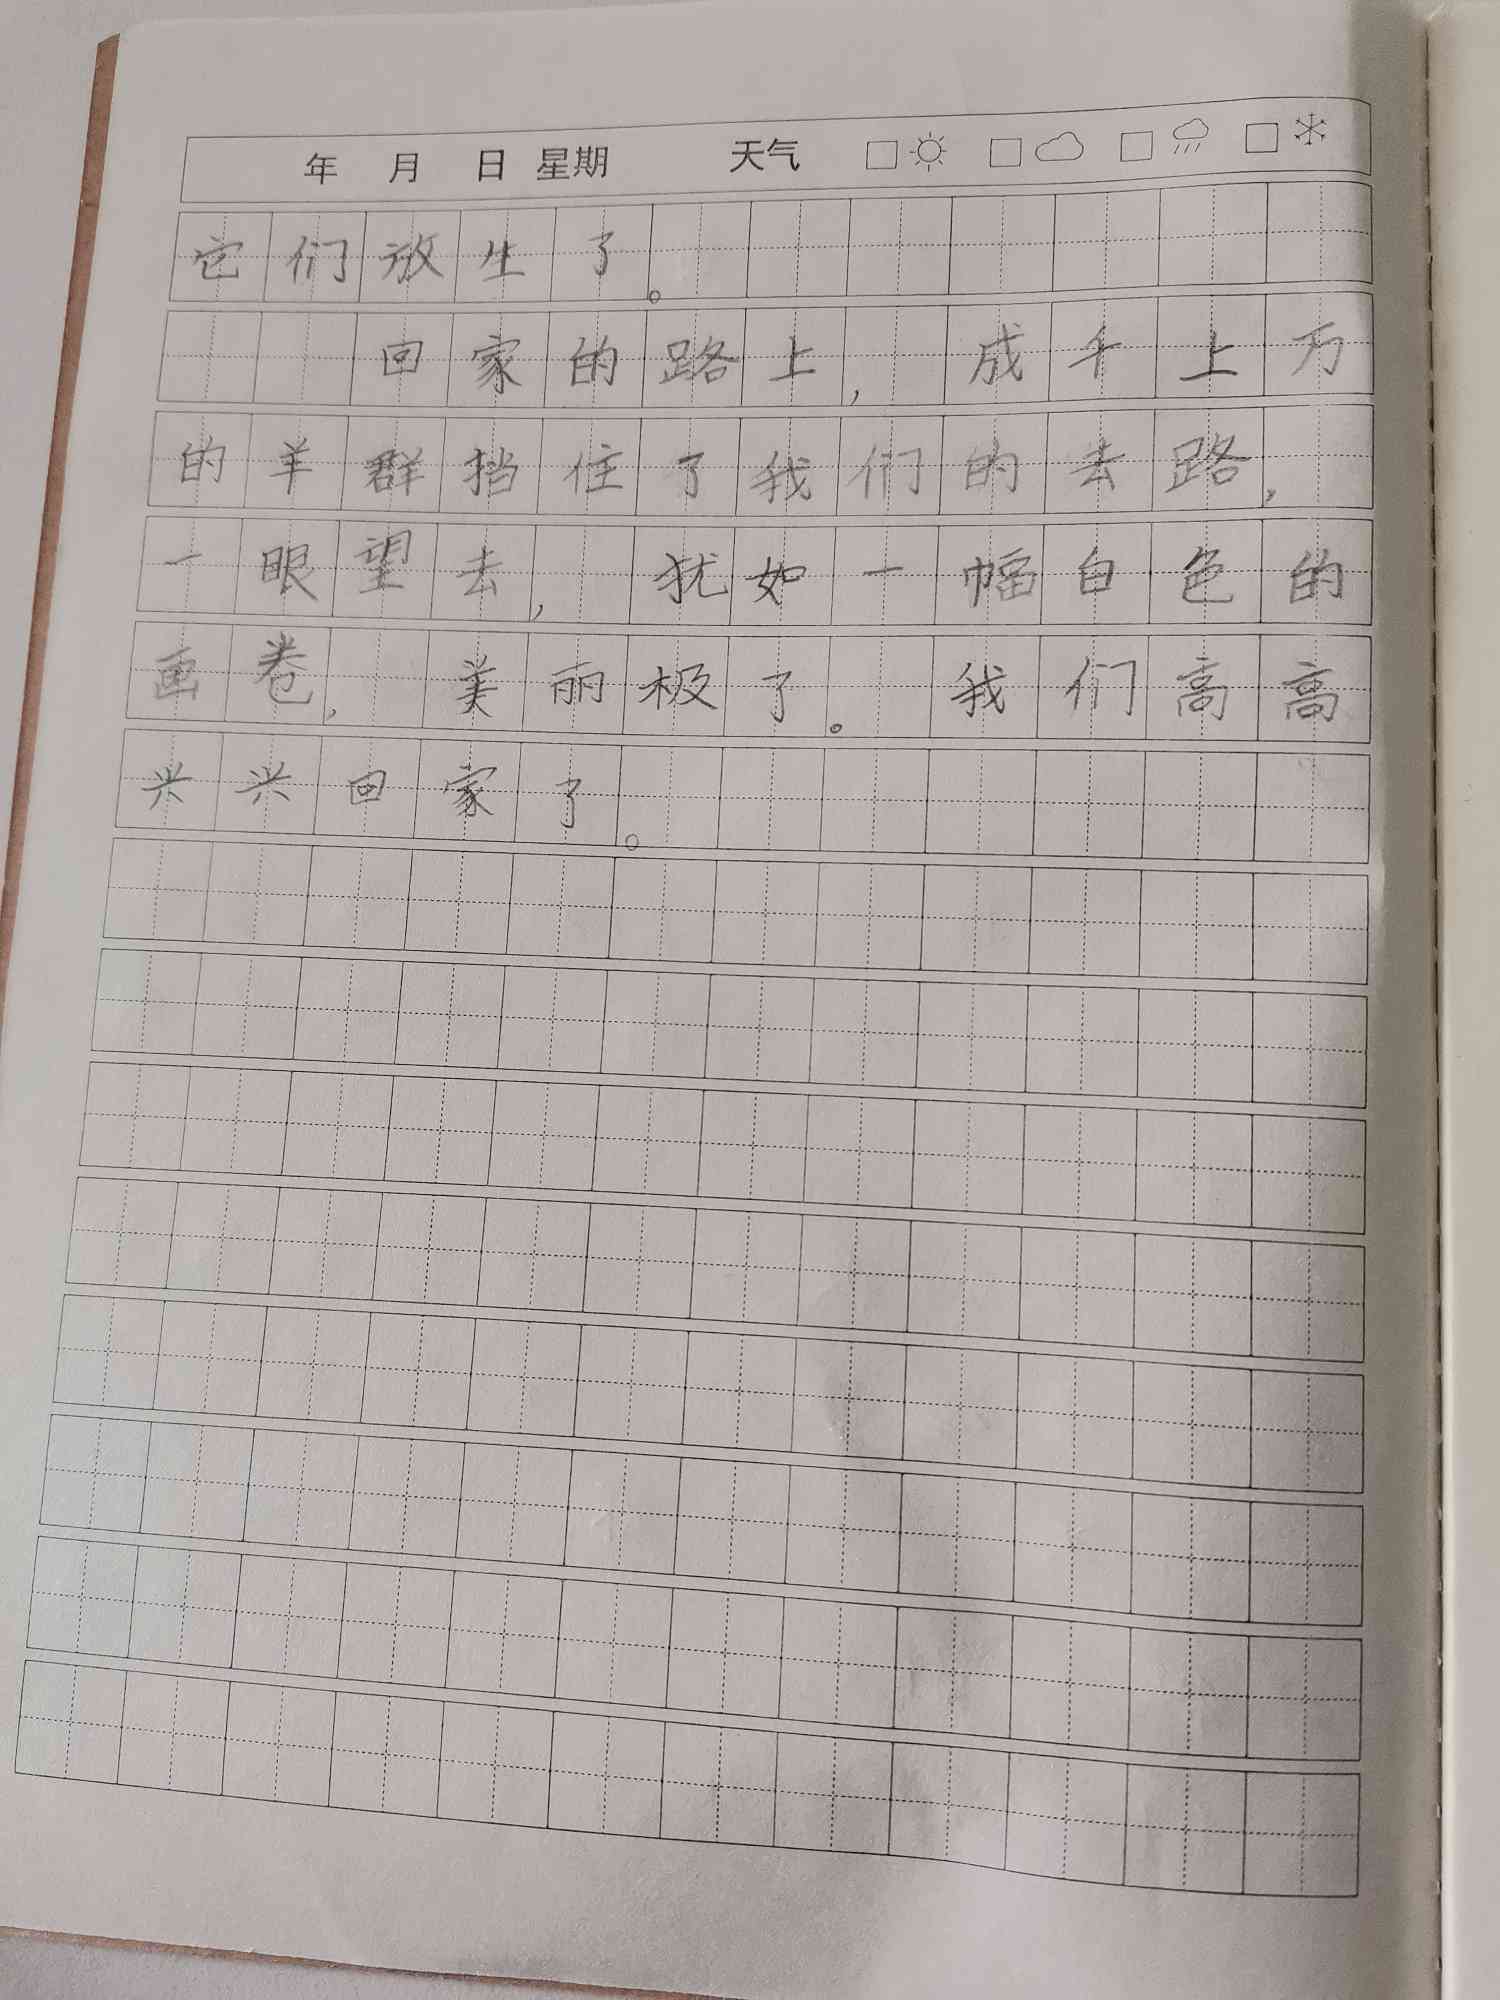 年 月 日 星期 天气
它们放生了。
回家的路上，成千上万
的羊群挡住了我们的去路，
一眼望去，犹如一幅白色的
画卷，美丽极了。我们高高
兴兴回家了。